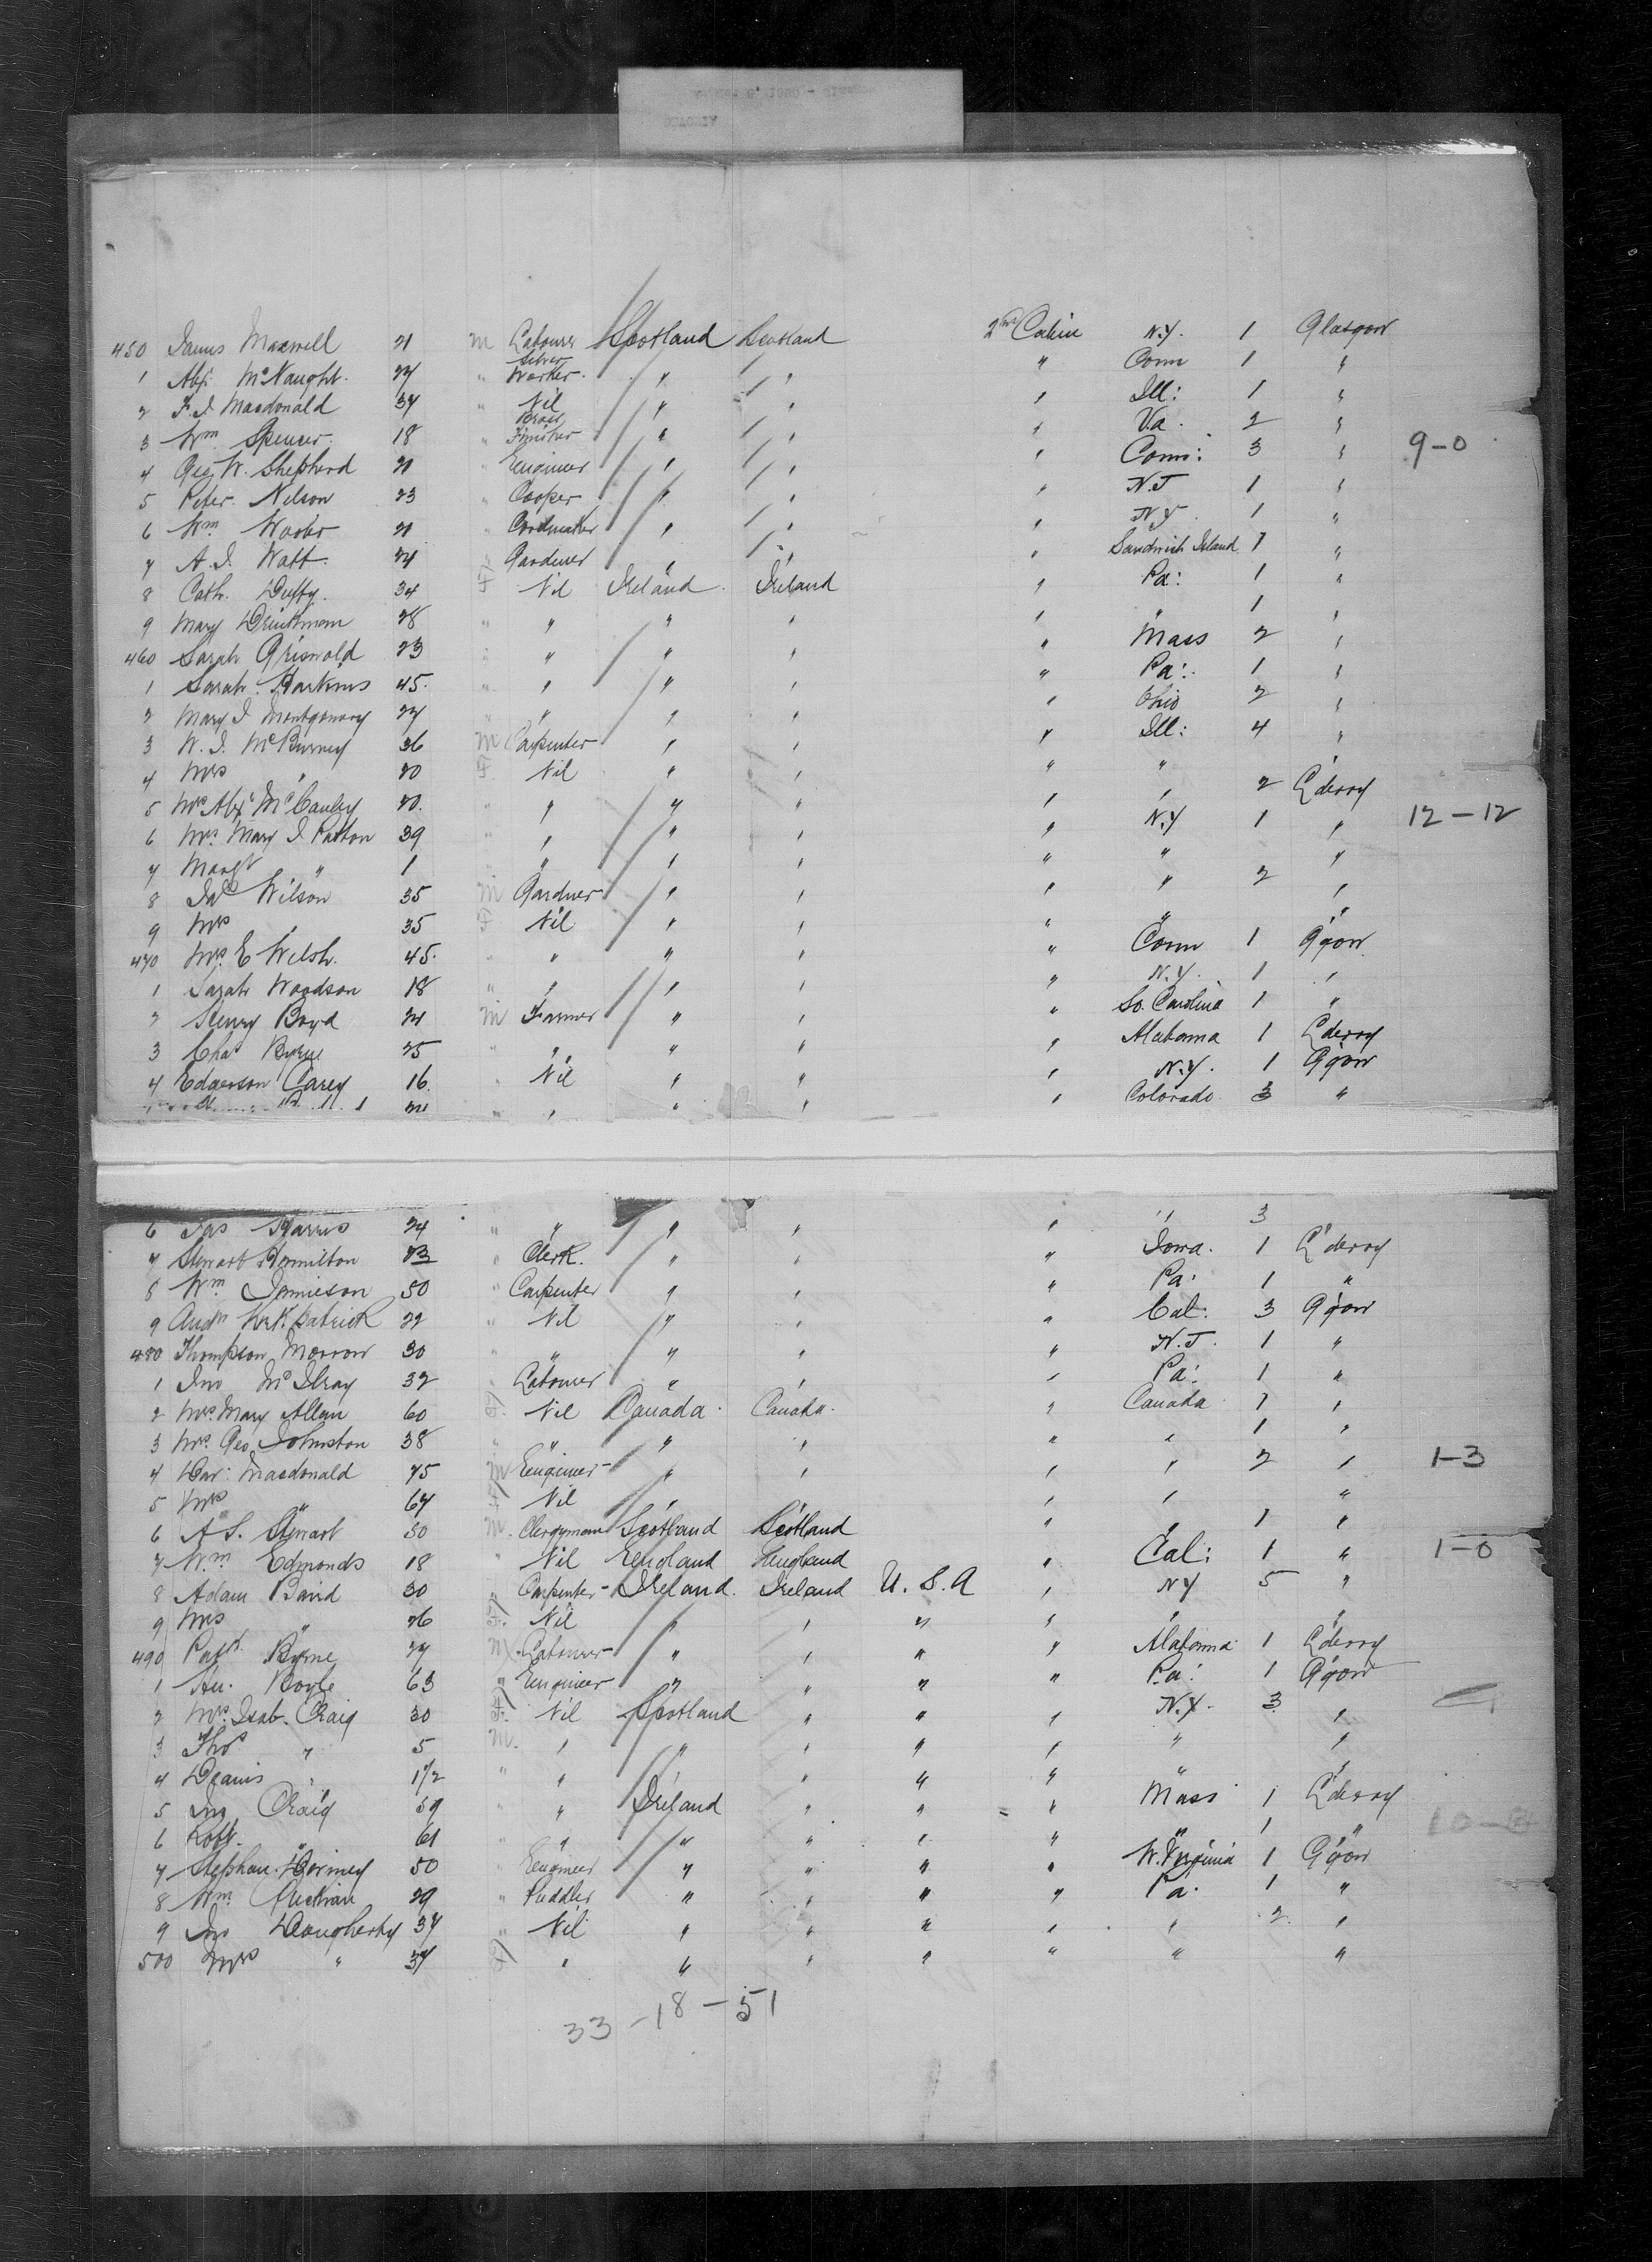 450 James Maxwell 21 m Labourer Scotland Scotland 2nd Cabin N.Y. 1 Glasgow
1 Alex McNaught. 27 " Silver Worker. " " " Conn 1 "
2 F. J. Macdonald 37 " Nil " " " Ill: 1 "
3 Wm Spencer. 18 " Brass Finisher " " " Va. 2 "
4 Geo W. Shepherd 21 " Engineer " " " Conn: 3 " 9-0
5 Peter. Nelson 23 " Cooper " " " N.J 1 "
6 Wm 21 " " " " N.Y. 1 "
7 A. J. Watt. 24 " Gardener " " " Sandwich Island 1 "
8 Cath. Duffy. 34 F Nil Ireland Ireland " Pa: 1 "
9 Mary 28 " " " " " " 1 "
460 Sarah Griswold 23 " " " " " Mass 2 "
1 Sarah Harkins 45. " " " " " Pa: 1 "
2 Mary J Montgomery 27 " " " " " Ohio 2 "
3 W. J. McBurney 36 m Carpenter " " " Ill: 4 "
4 Mrs " 20 F Nil " " " "
5 Mrs Alex McCauley 20. " " " " " " 2 L'derry
6 Mrs Mary J Patton 39 " " " " " N.Y 1 " 12-12
7 Margt " 1 " " " " " " "
8 Jas Wilson 35 m Gardner " " " " 2 "
9 Mrs " 35 F Nil " " " " "
470 Mrs E Welsh. 45. " " " " " Conn 1 G'gow
1 Sarah Woodson 18 " " " " " N.Y. 1 "
2 Henry Boyd 24 m Farmer " " " So. Carolina 1 "
3 Chas Byrne 25 " " " " " Alabama 1 L'derry
4 Carey 16. " Nil " " " N.Y. 1 G'gow
" " " " " Colorado 3 "
6 Jas Harris 24 " " " " " " 3
7 Stewart Hamilton 23 " Clerk. " " " Iowa. 1 L'derry
8 Wm Jamieson 50 " Carpenter " " " Pa: 1 "
9 Andw Kirkpatrick 22 " Nil " " " Cal: 3 G'gow
480 Thompson Morrow 30 " " " " " N.J. 1 "
1 Jno McIlray 32 " Labourer " " " Pa: 1 "
2 Mrs. Mary Allan 60 F. Nil Canada. Canada. " Canada 1 "
3 Mrs. Geo Johnston 38 " " " " " " 1 "
4 Dav: Macdonald 75 m Engineer " " " " 2 " 1-3
5 Mrs " 67 F Nil " " " " "
6 A. S. Stewart 50 m. Clergyman Scotland Scotland " " 1 "
7 Wm. Edmonds 18 " Nil England England " Cal: 1 " 1-0
8 Adam Baird 30 " Carpenter Ireland. Ireland U.S.A " NY 5 "
9 Mrs " 26 F. Nil " " " " " "
490 Patk Byrne 27 m. Labourer " " " " Alabama 1 L'derry
1 Boyle 63 " Engineer " " " " Pa: 1 G'gow
2 Mrs. Isab. Craig 30 F. Nil Scotland " " " N.Y. 3 "
3 Thos " 5 m. " " " " " " "
4 " 1 1/2 " " " " " " " "
5 Jno Craig 59 " " Ireland " " " Mass 1 L'derry
6 Robt. " 61 " " " " " " " 1 "
7 50 " Engineer " " " " W. Virginia 1 G'gow
8 Wm. 29 " Puddler " " " " Pa. 1 "
9 Jno Dougherty 37 " Nil " " " " " 2. "
500 Mrs " 37 F " " " " " " "
33-18-51